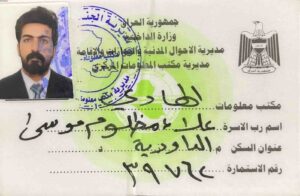 جمهورية العراق
وزارة الداخلية
مديرية الاحوال المدنية والجوازات والاقامة
مديرية مكتب المعلومات المركزي
مكتب معلومات / الهادي
اسم رب الاسرة / علاء مظلوم موسى
عنوان السكن م
رقم الاستمارة / ٣٩٧٦٢